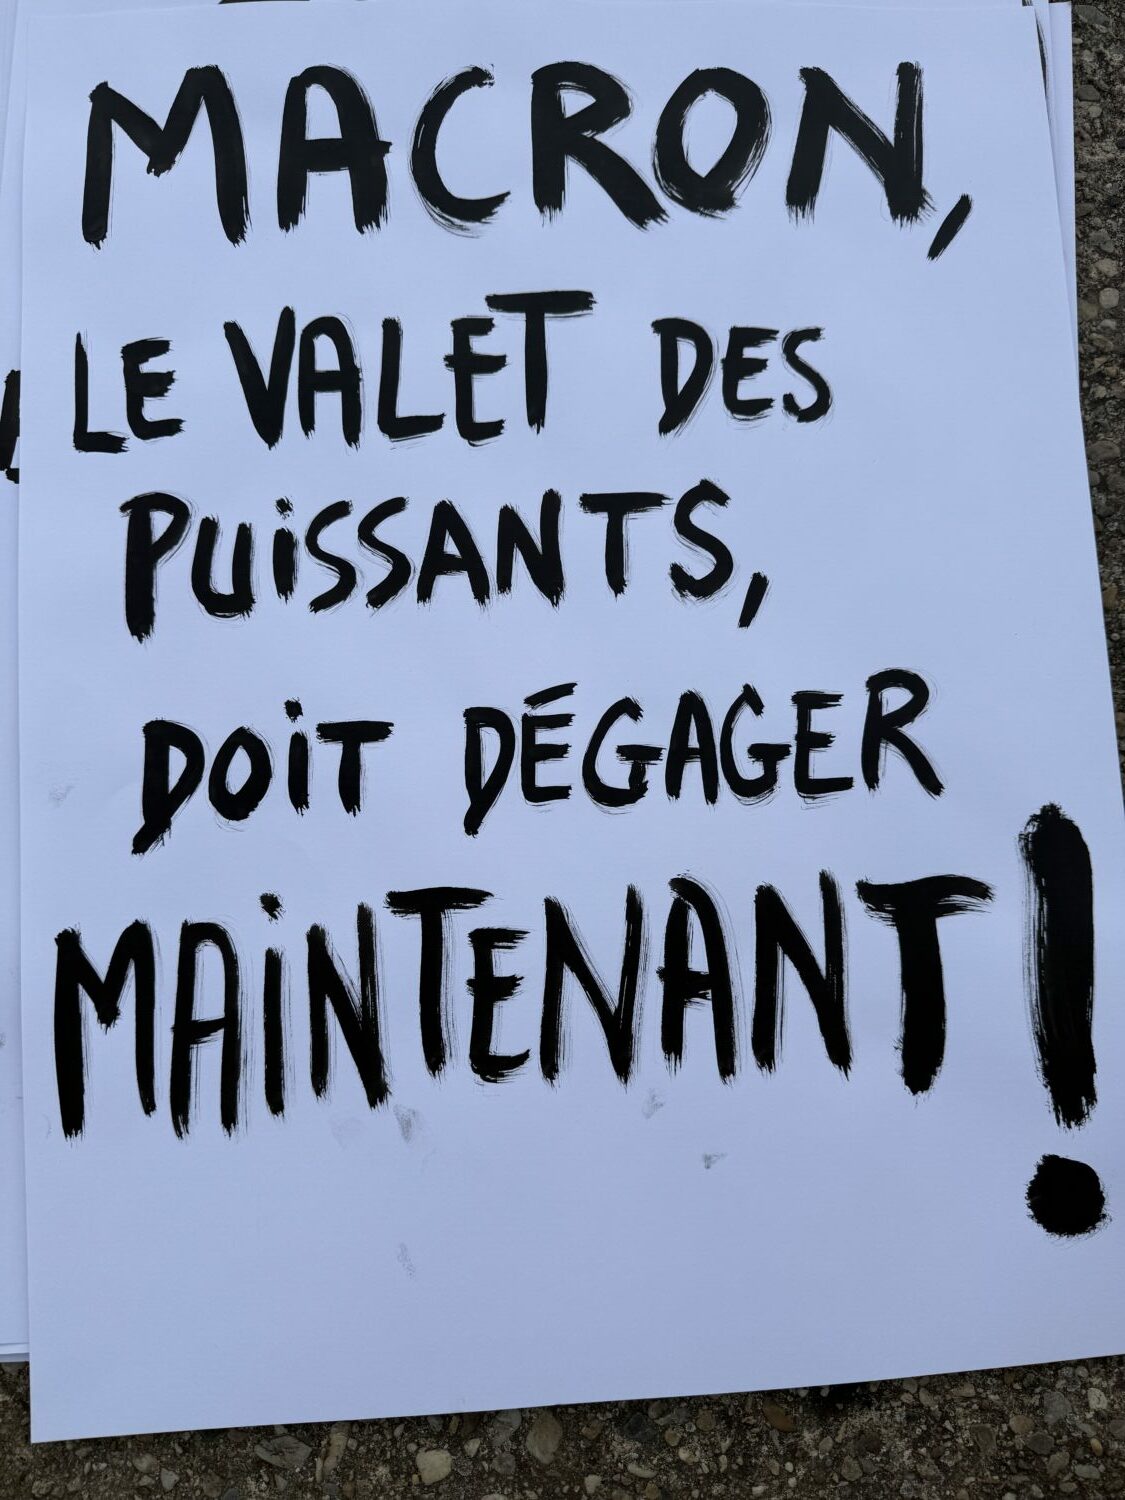 MACRON,
LE VALET DES
PUiSSANTS,
DOiT DÉGAGER
MAiNTENANT!